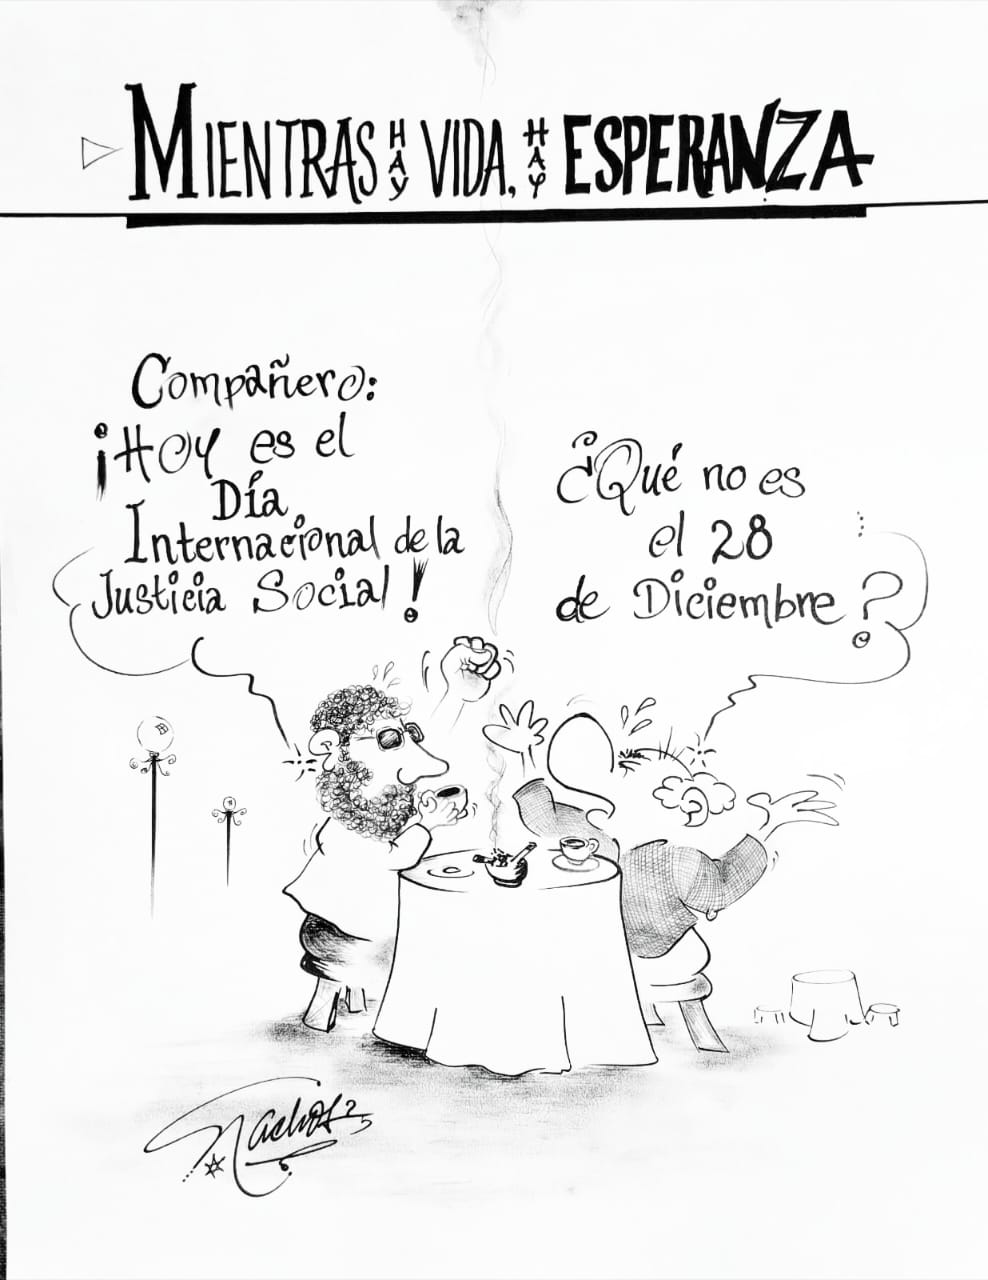 MIENTRAS HAY VIDA, HAY ESPERANZA
Compañero:
¡HOY es el
Día
Internacional de la
Justicia Social!
¿Qué no es
el 28
de Diciembre?
Nachos 25